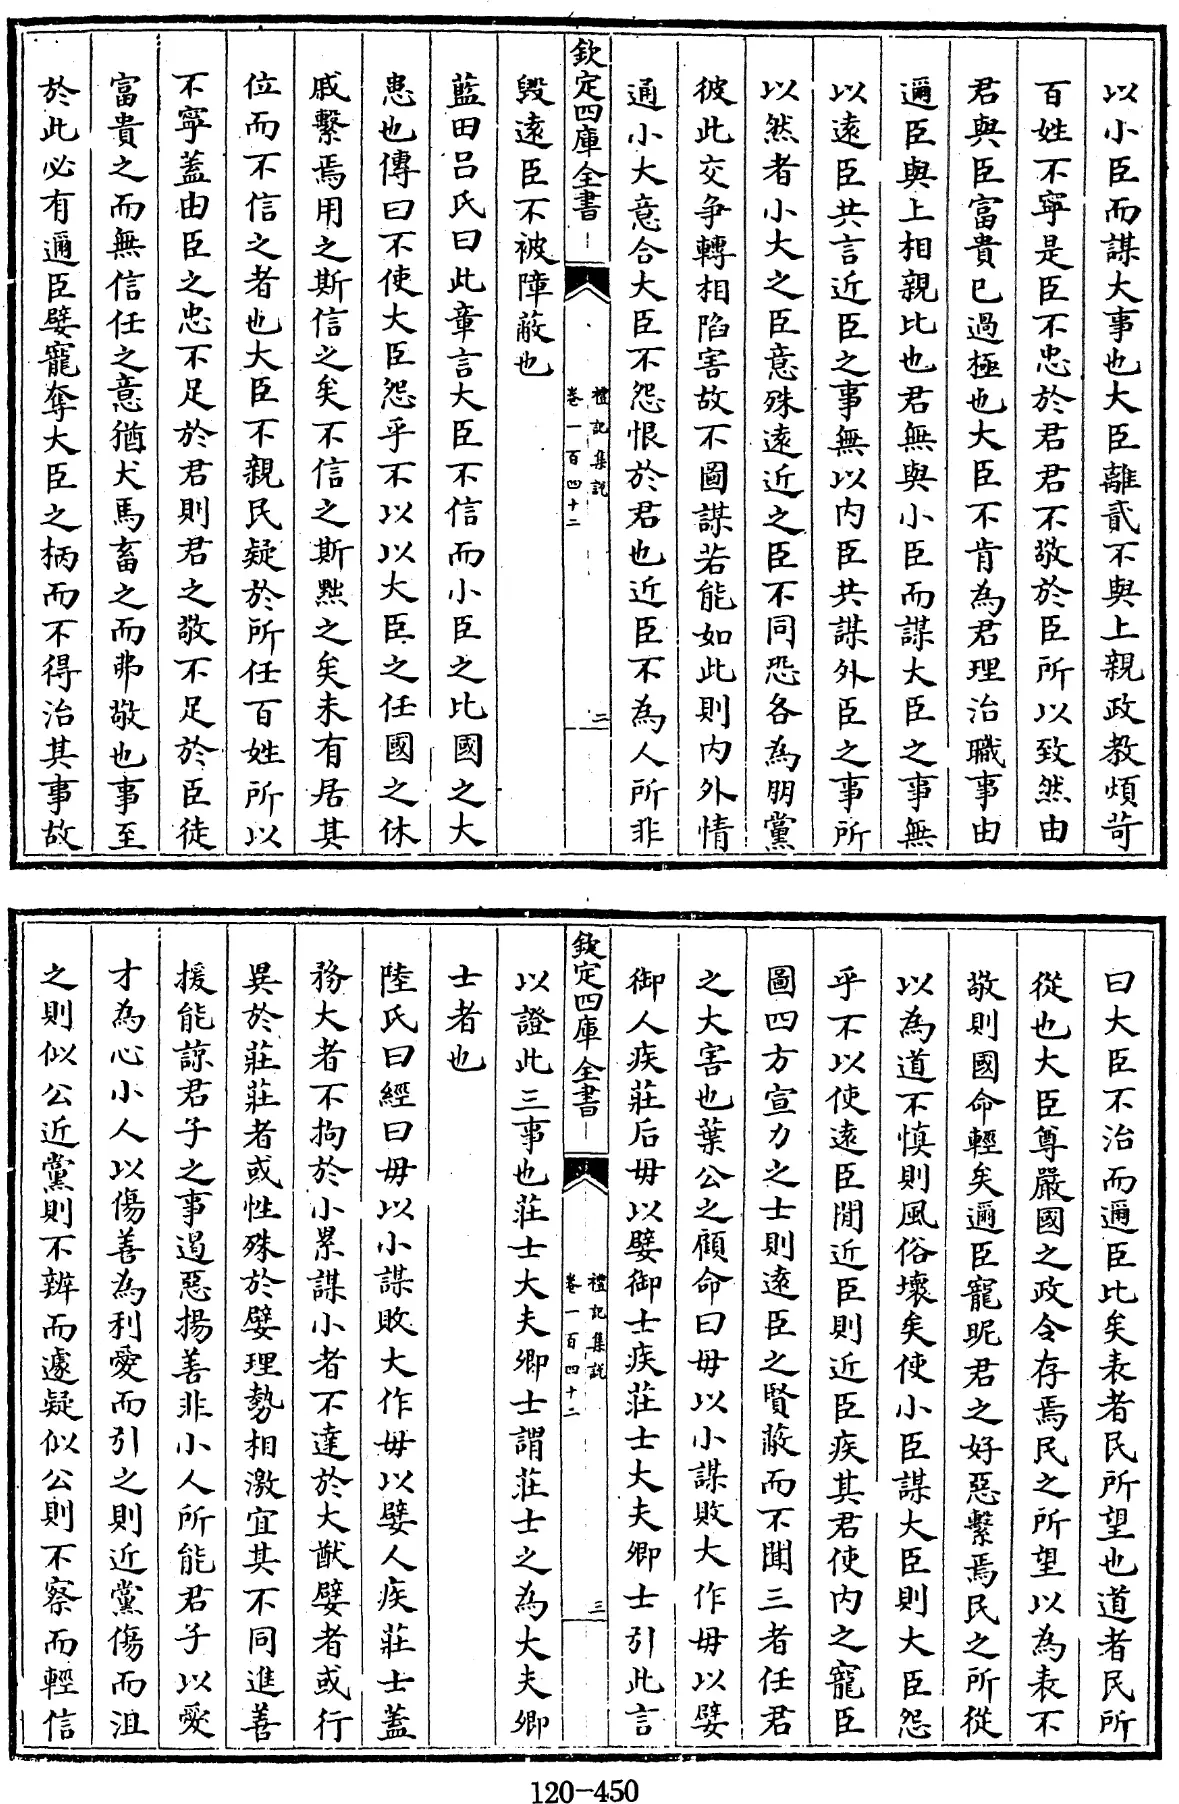 以小臣而謀大事也大臣離貳不與上親政教煩苛
百姓不寧是臣不忠於君君不敬於臣所以致然由
君與臣富貴已過極也大臣不肯為君理治職事由
邇臣與上相親比也君無與小臣而謀大臣之事無
以遠臣共言近臣之事無以内臣共謀外臣之事所
以然者小大之臣意殊遠近之臣不同恐各為朋黨
彼此交争轉相陷害故不圖謀若能如此則内外情
通小大意合大臣不怨恨於君也近臣不為人所非
欽定四庫全書
禮記集說
卷一百四十二
二
毀遠臣不被障蔽也
藍田吕氏曰此章言大臣不信而小臣之比國之大
患也傳曰不使大臣怨乎不以以大臣之任國之休
戚繫焉用之斯信之矣不信之斯黜之矣未有居其
位而不信之者也大臣不親民疑於所任百姓所以
不寧蓋由臣之忠不足於君則君之敬不足於臣徒
富貴之而無信任之意猶犬馬畜之而弗敬也事至
於此必有邇臣嬖寵奪大臣之柄而不得治其事故
曰大臣不治而邇臣比矣表者民所望也道者民所
從也大臣尊嚴國之政令存焉民之所望以為表不
敬則國命輕矣邇臣寵昵君之好惡繫焉民之所從
以為道不慎則風俗壞矣使小臣謀大臣則大臣怨
乎不以使遠臣間近臣則近臣疾其君使内之寵臣
圖四方宣力之士則遠臣之賢蔽而不聞三者任君
之大害也葉公之顧命曰毋以小謀敗大作毋以嬖
御人疾莊后毋以嬖御士疾莊士大夫卿士引此言
欽定四庫全書
禮記集說
卷一百四十二
三
以證此三事也莊士大夫卿士謂莊士之為大夫卿
士者也
陸氏曰經曰毋以小謀敗大作毋以嬖人疾莊士蓋
務大者不拘於小累謀小者不達於大猷嬖者或行
異於莊莊者或性殊於嬖理勢相激宜其不同進善
援能諒君子之事遏惡揚善非小人所能君子以愛
才為心小人以傷善為利愛而引之則近黨傷而沮
之則似公近黨則不辨而遽疑似公則不察而輕信
120-450